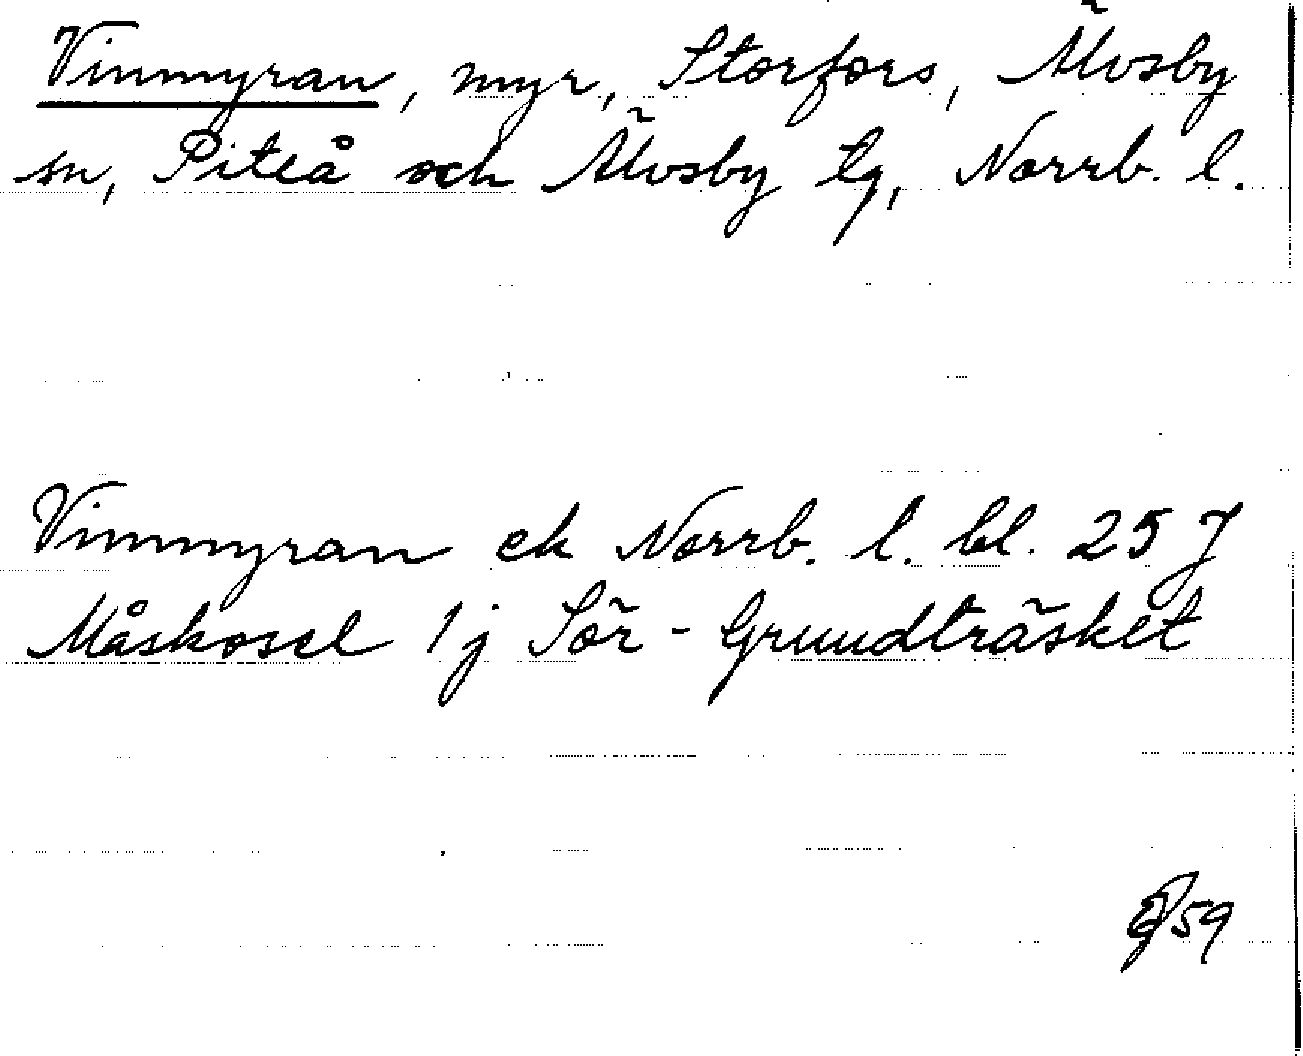 Vinmyran, myr, Storfors, Älvsby
sn, Piteå och Älvsby tg, Norrb. l.
Vinmyran ek Norrb. l. bl. 25 J
Måskosel 1j Sör-Grundträsket
59